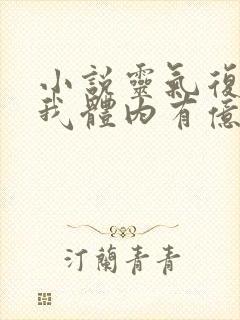 小說靈氣復
我體内有億
汀蘭青青